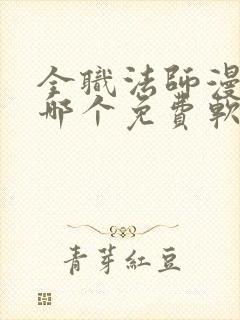 全職法師漫
哪个免費軟
青芽紅豆